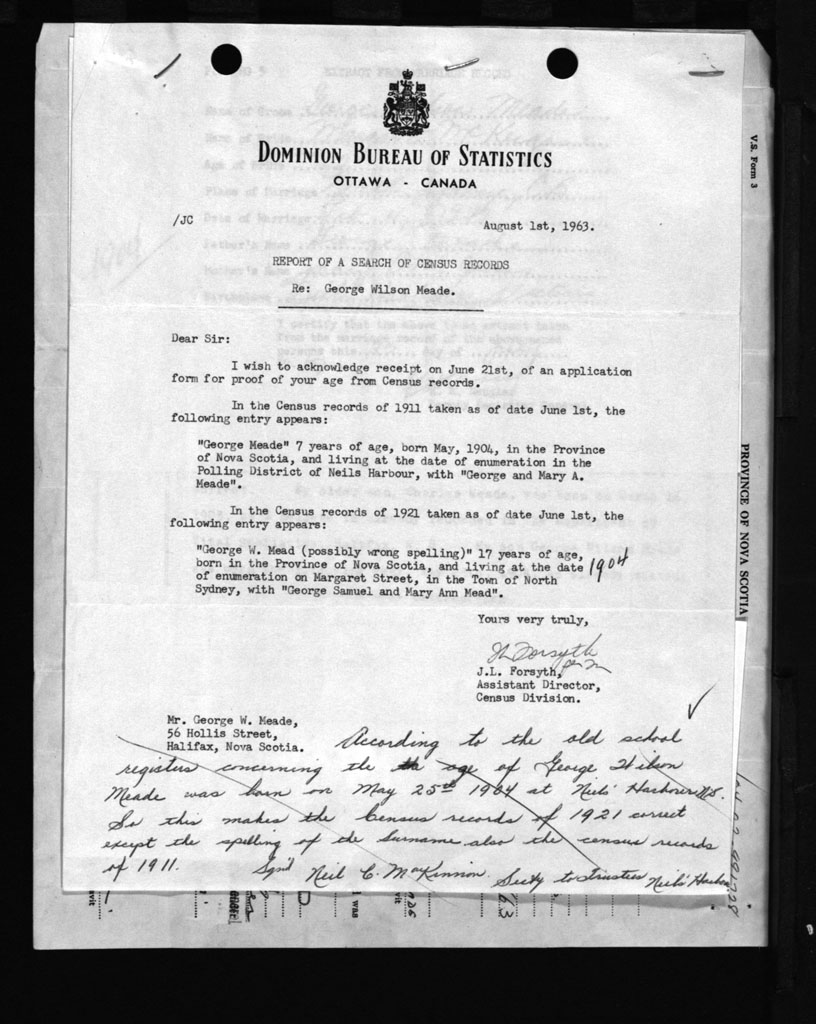 DOMINION BUREAU OF STATISTICS
OTTAWA - CANADA
/JC
August 1st, 1963.
REPORT OF A SEARCH OF CENSUS RECORDS
Re: George Wilson Meade.
Dear Sir:
I wish to acknowledge receipt on June 21st, of an application
form for proof of your age from Census records.
In the Census records of 1911 taken as of date June 1st, the
following entry appears:
"George Meade" 7 years of age, born May, 1904, in the Province
of Nova Scotia, and living at the date of enumeration in the
Polling District of Neils Harbour, with "George and Mary A.
Meade".
In the Census records of 1921 taken as of date June 1st, the
following entry appears:
"George W. Mead (possibly wrong spelling)" 17 years of age,
born in the Province of Nova Scotia, and living at the date 1904
of enumeration on Margaret Street, in the Town of North
Sydney, with "George Samuel and Mary Ann Mead".
Yours very truly,
J L Forsyth
J.L. Forsyth,
Assistant Director,
Census Division.
Mr. George W. Meade,
56 Hollis Street,
Halifax, Nova Scotia.
According to the old school
register concerning the age of George Wilson
Meade was born on May 25th 1904 at Neils' Harbour N.S.
So this makes the Census records of 1921 correct
except the spelling of the Surname also the census records
of 1911. Sgn'd Neil C. MacKinnon. Secty to Trustees Neils' Harbour
V.S. Form 3
PROVINCE OF NOVA SCOTIA
I was
63